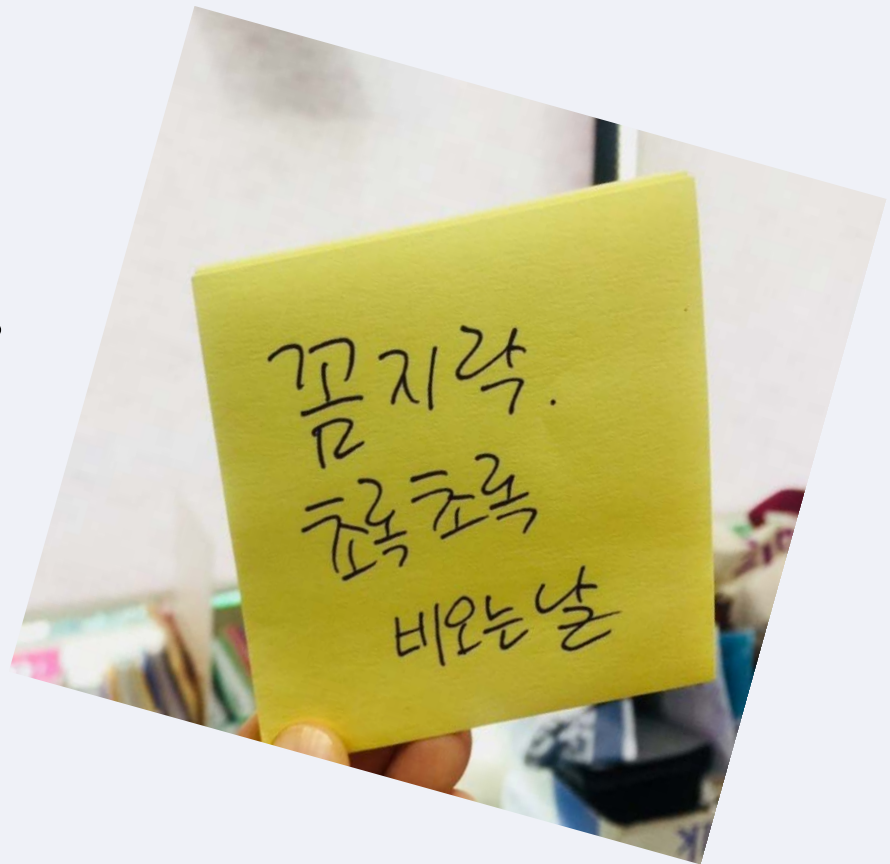 꼼지락.
초록초록
비오는날